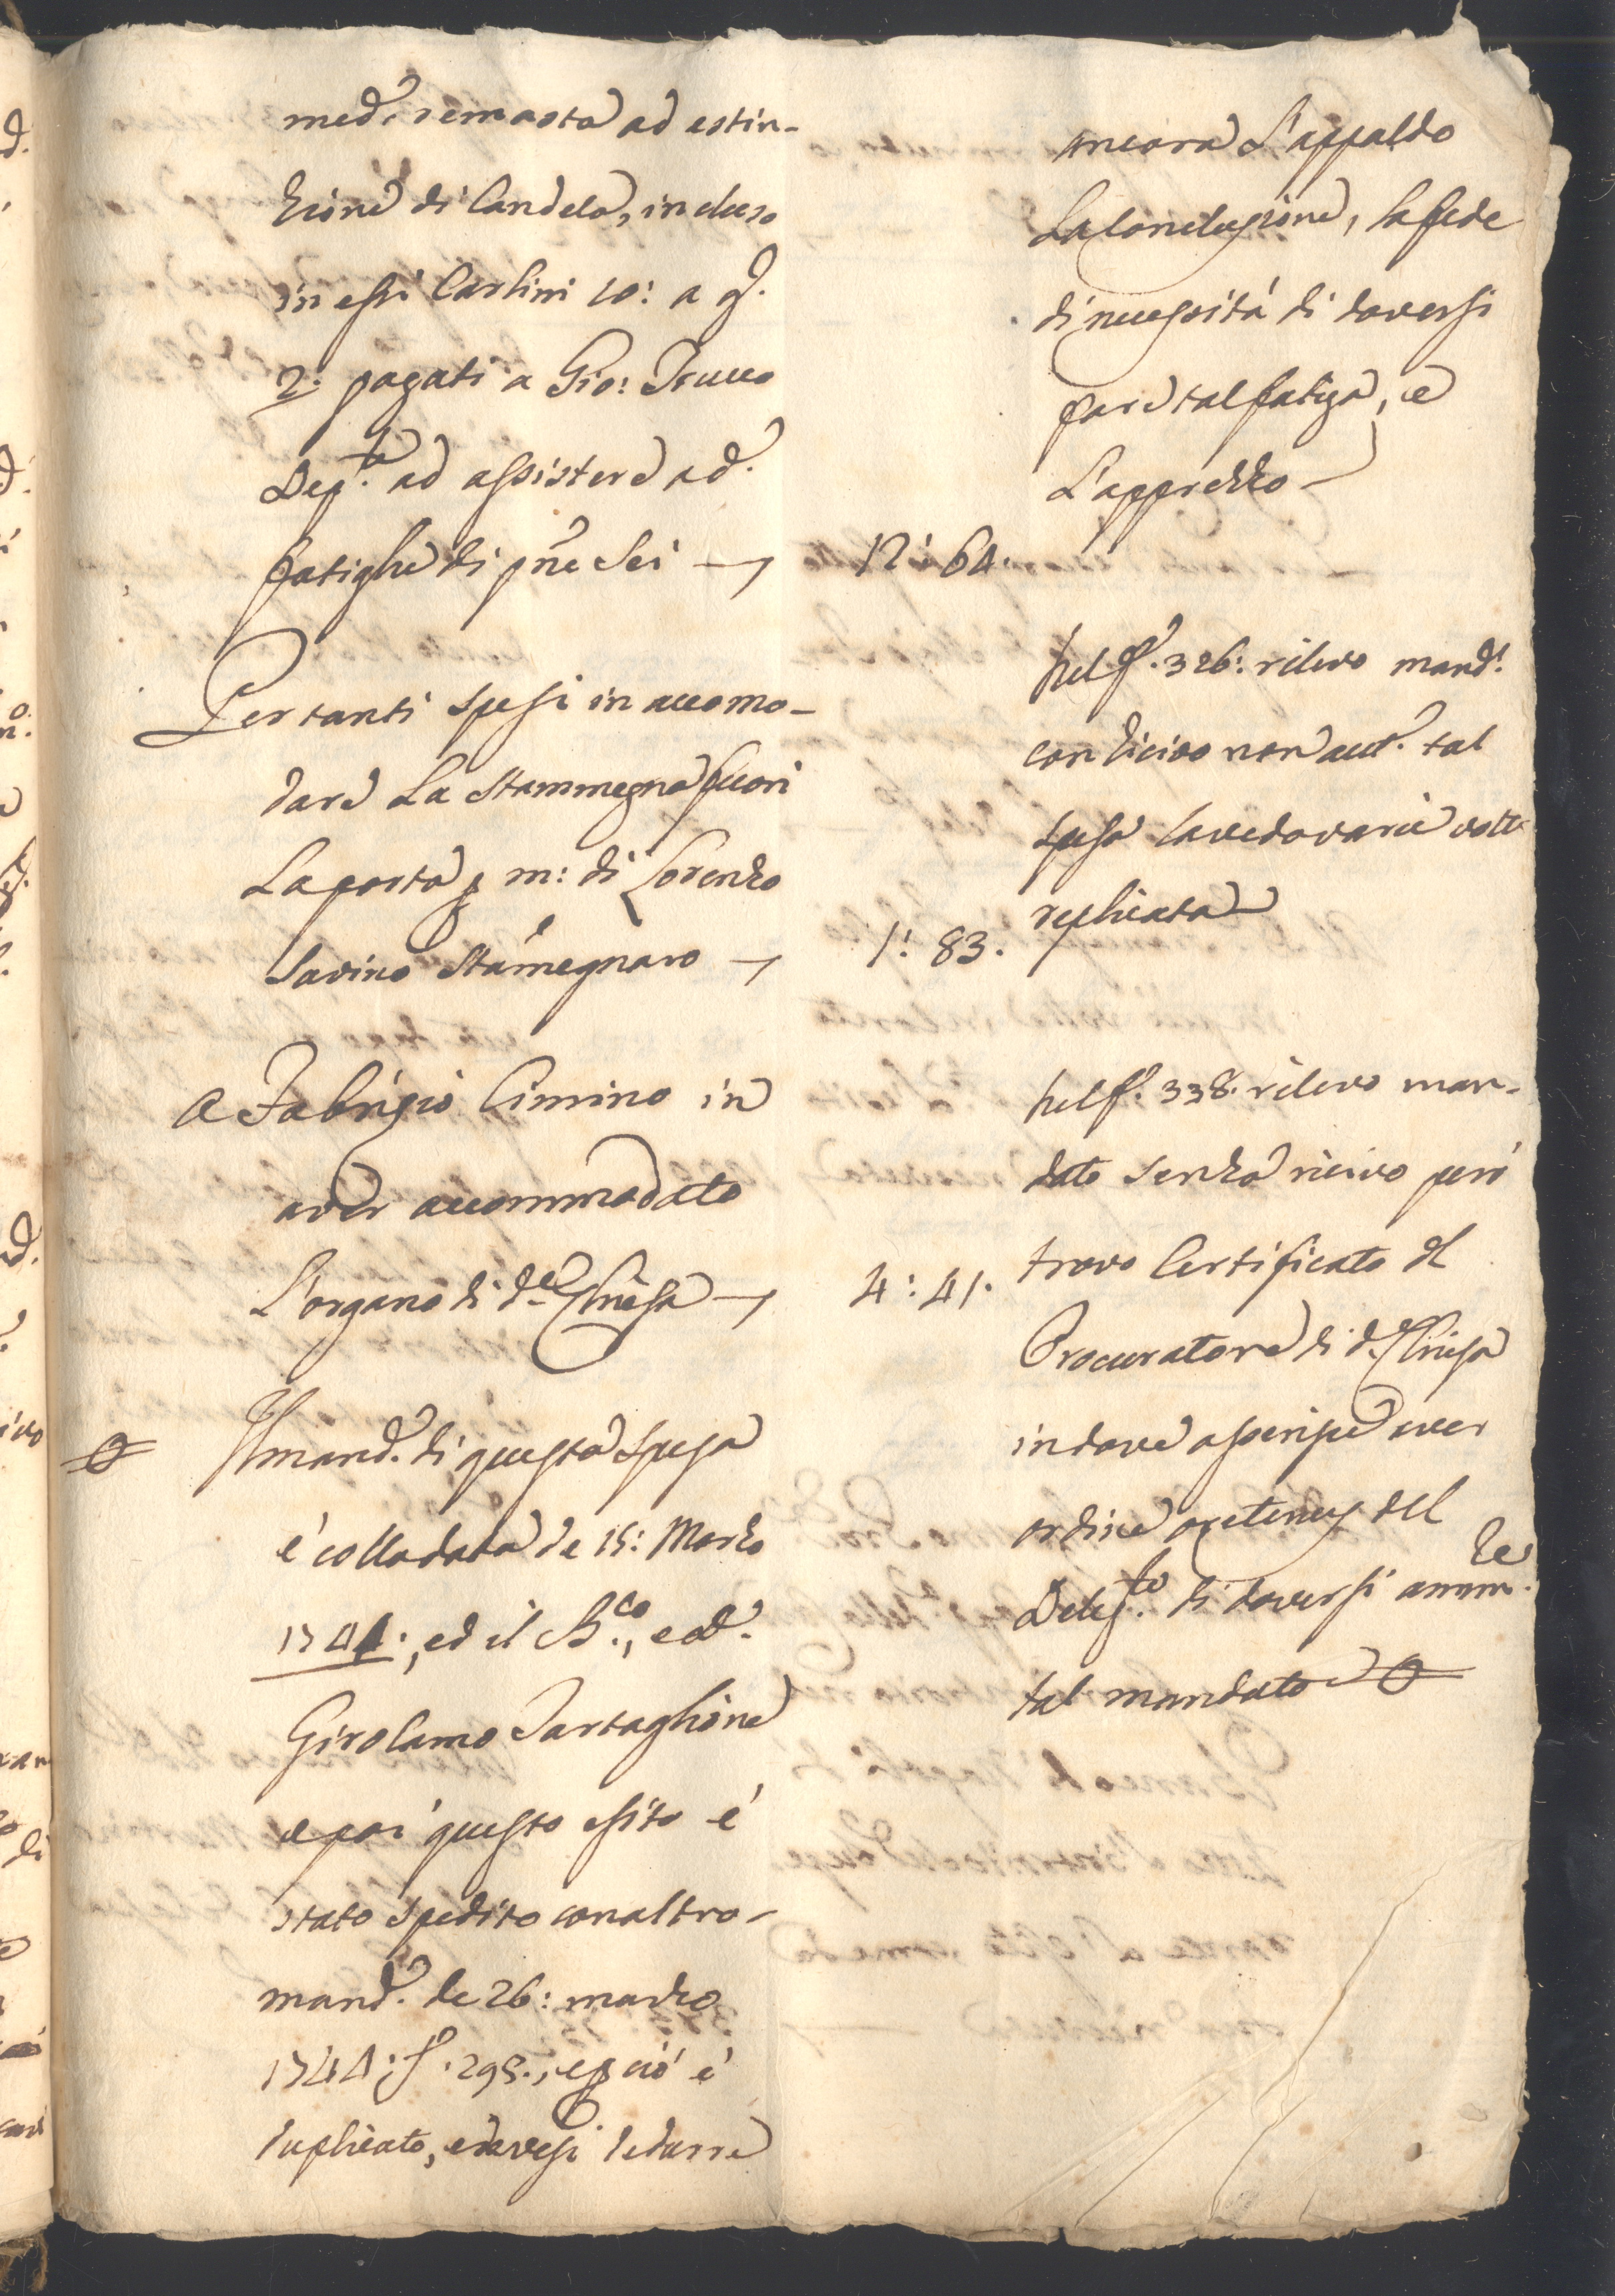 med.ᵃ remasta ad estin-
zione di Candela, incluso
in essi Carlini 10: a g.
2: pagati a Gio:
Dep.to ad assistere a d.e
fatighe di pñe Sei — 12: 64.
Per tanti spesi in accomo-
dare La Stammegna fuori
La porta p m: di Lorenzo
Savino Stamegnaro — 1: 83.
A Fabrizio Cimino in
aver accommodato
L'organo di d.ª Chiesa — 4: 41.
Il mand.º di questa spesa
è collodata de 15: Marzo
1744:, ed il B.co, e d.
Girolamo Tartaglione
e poi questo esito è
stato spedito con altro
mand.º de 26: marzo
1744: f. 298., e p ciò è
duplicato, e devesi dedurre
ancora L'appaldo
La Conclusione, la fede
di necessità di doversi
fare tal fatiga, e
L'apprezzo
Nel f.º 326: rilevo mand.º
con ricivo non aut.º tal
spesa
replicata
Nel f.º 338. rilevo man-
dato senza ricivo però
trovo Certificato del
Procuratore di d.ª Chiesa
in dove asserisce aver
ordine oretenus del
Deleg.to di doversi amm.re
tal mandato